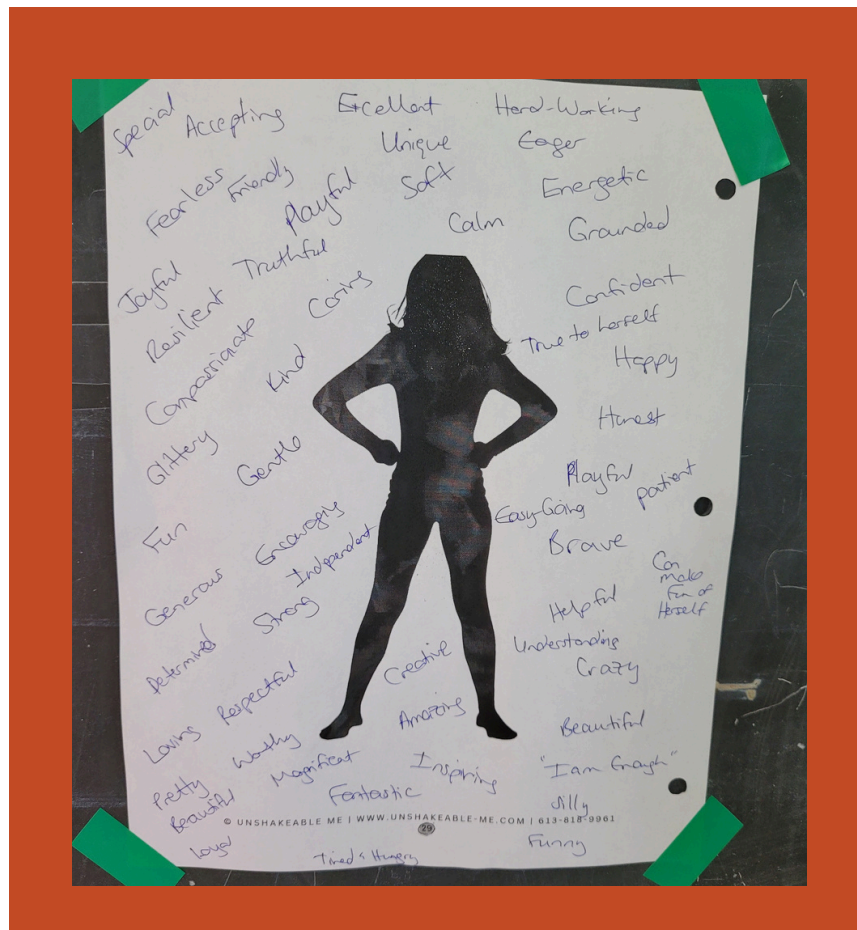 Special
Accepting
Excellent
Hard-Working
Unique
Eager
Fearless
Friendly
Playful
Soft
Energetic
Calm
Grounded
Joyful
Truthful
Resilient
Caring
Confident
True to herself
Compassionate
Kind
Happy
Glittery
Gentle
Honest
Playful
patient
Easy-Going
Fun
Encouraging
Brave
Independent
Can
make
Fun of
Herself
Generous
Strong
Helpful
Understanding
Determined
Creative
Crazy
Respectful
Loving
Amazing
Beautiful
Worthy
Magnificent
Inspiring
"I am Enough"
Pretty
Beautiful
Fantastic
Silly
© UNSHAKEABLE ME | WWW.UNSHAKEABLE-ME.COM | 613-818-9961
29
Funny
Tired & Hungry